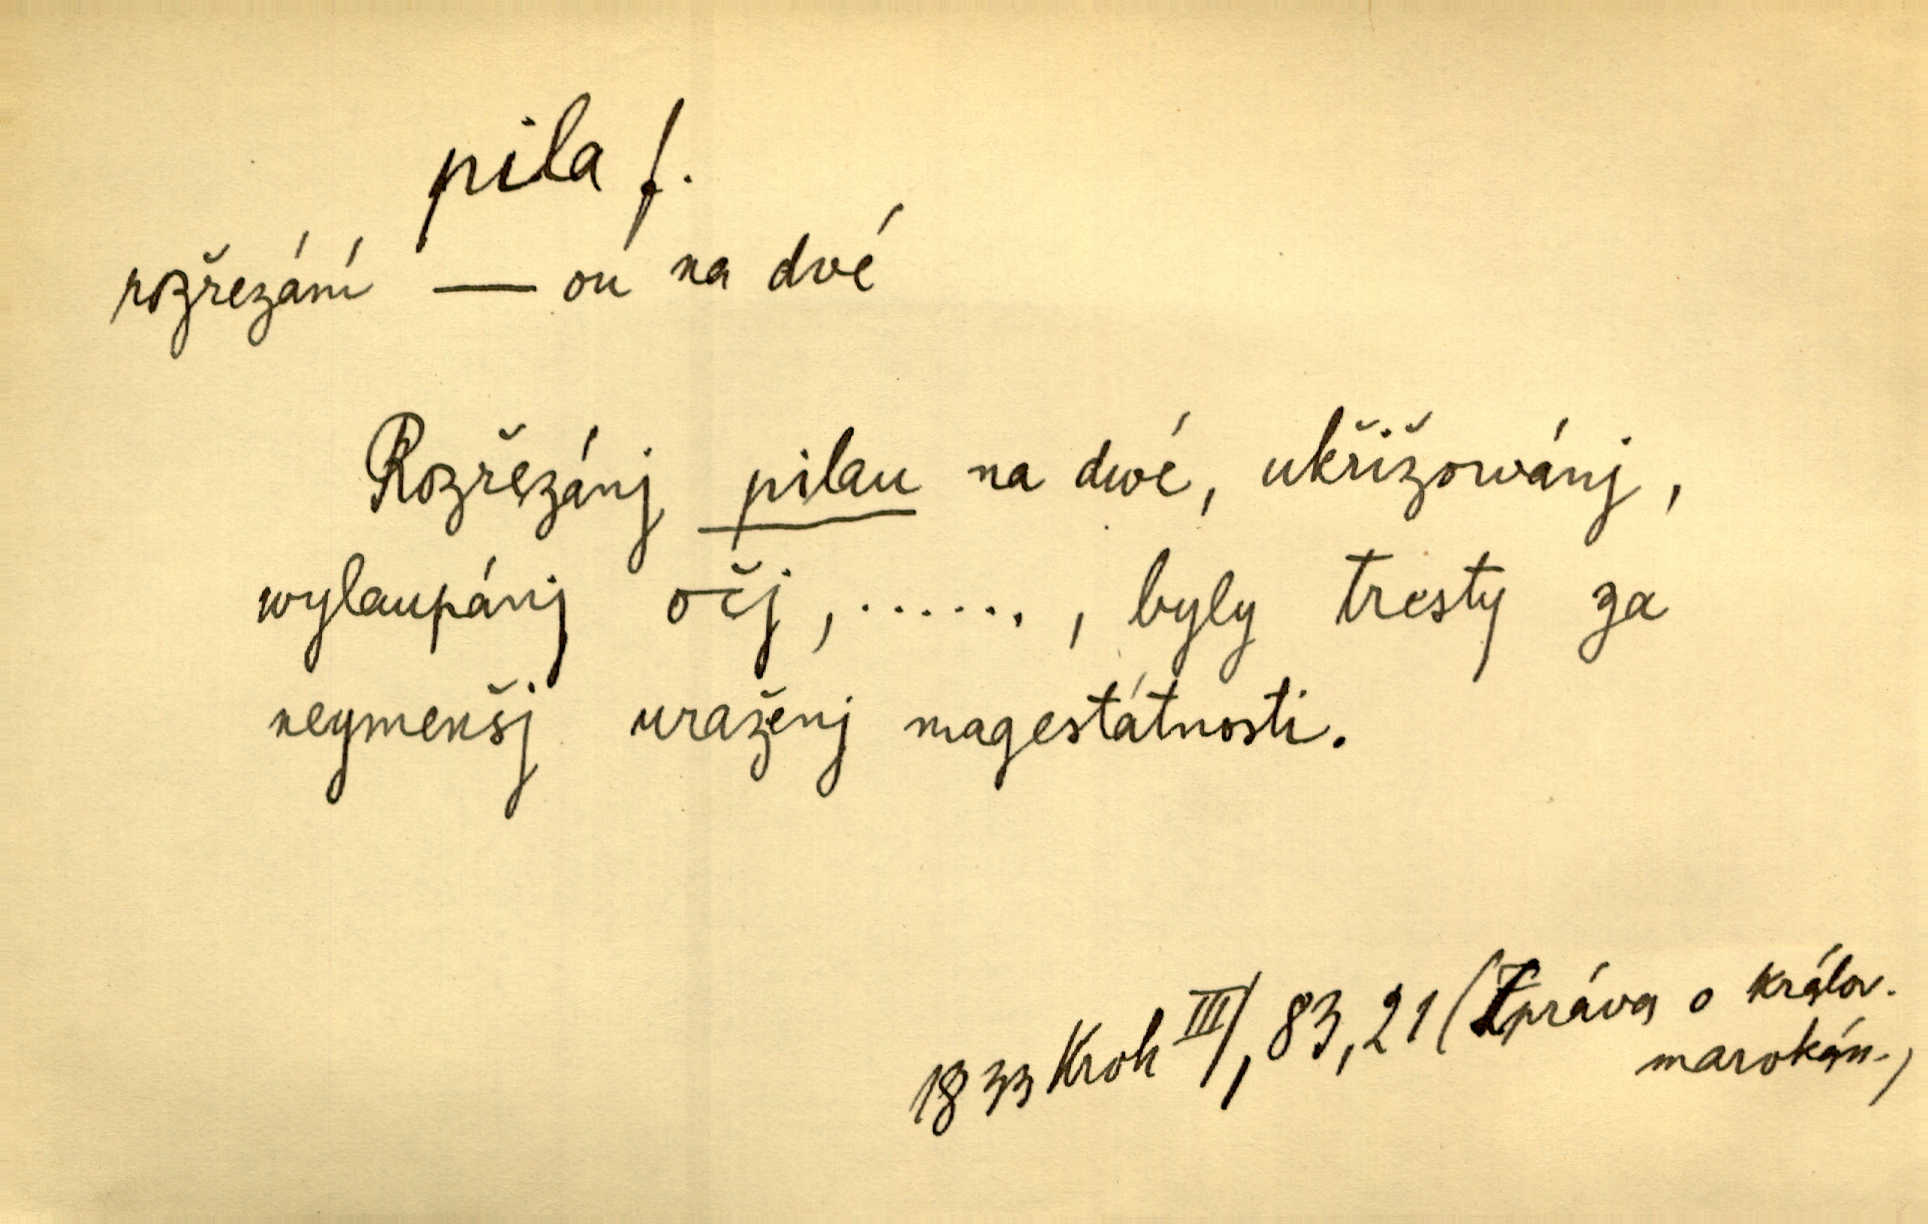 pila f.
rozřezání — ou na dvé
Rozřezánj pilau na dwé, ukřižowánj,
wylaupánj očj, ......, byly tresty za
neymenšj uraženj magestátnosti.
1833 Krok III/, 83, 21 (Zpráva o králov.
marokán.)